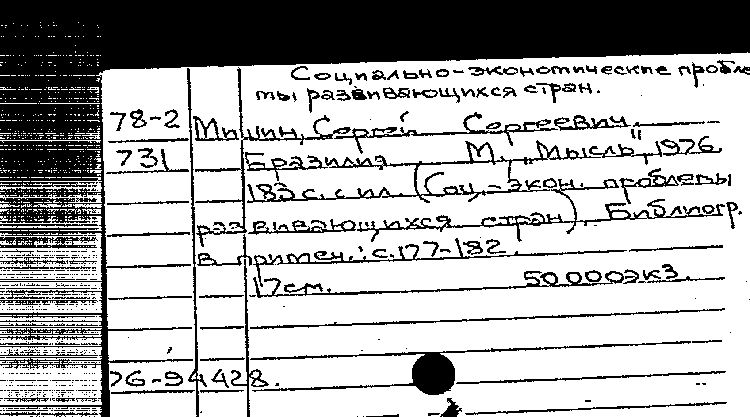 Социально-экономические пробле
мы развивающихся стран.
78-2 Мишин, Сергей Сергеевич.
731 Бразилия М., „Мысль", 1976.
183 с. с ил. (Соц.-экон. проблемы
развивающихся стран). Библиогр.
в примеч.: с. 177-182.
17 см. 50000экз.
76-94428.